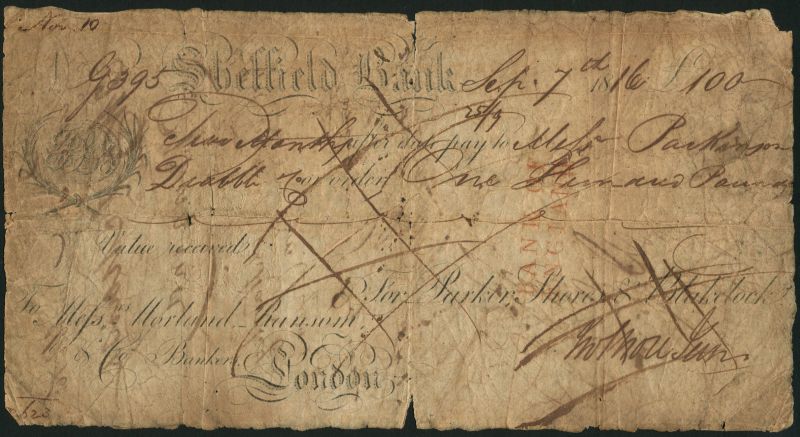 Nov. 10
G395 Sheffield Bank Sep. 7th 1816 £100
Two Months after date pay to Messrs Parkinson
or order One Hundred Pounds
Value received
For Parker, Shores & Blakelock
To Messrs Morland Ransom
& Co Bankers
London
BANK OF